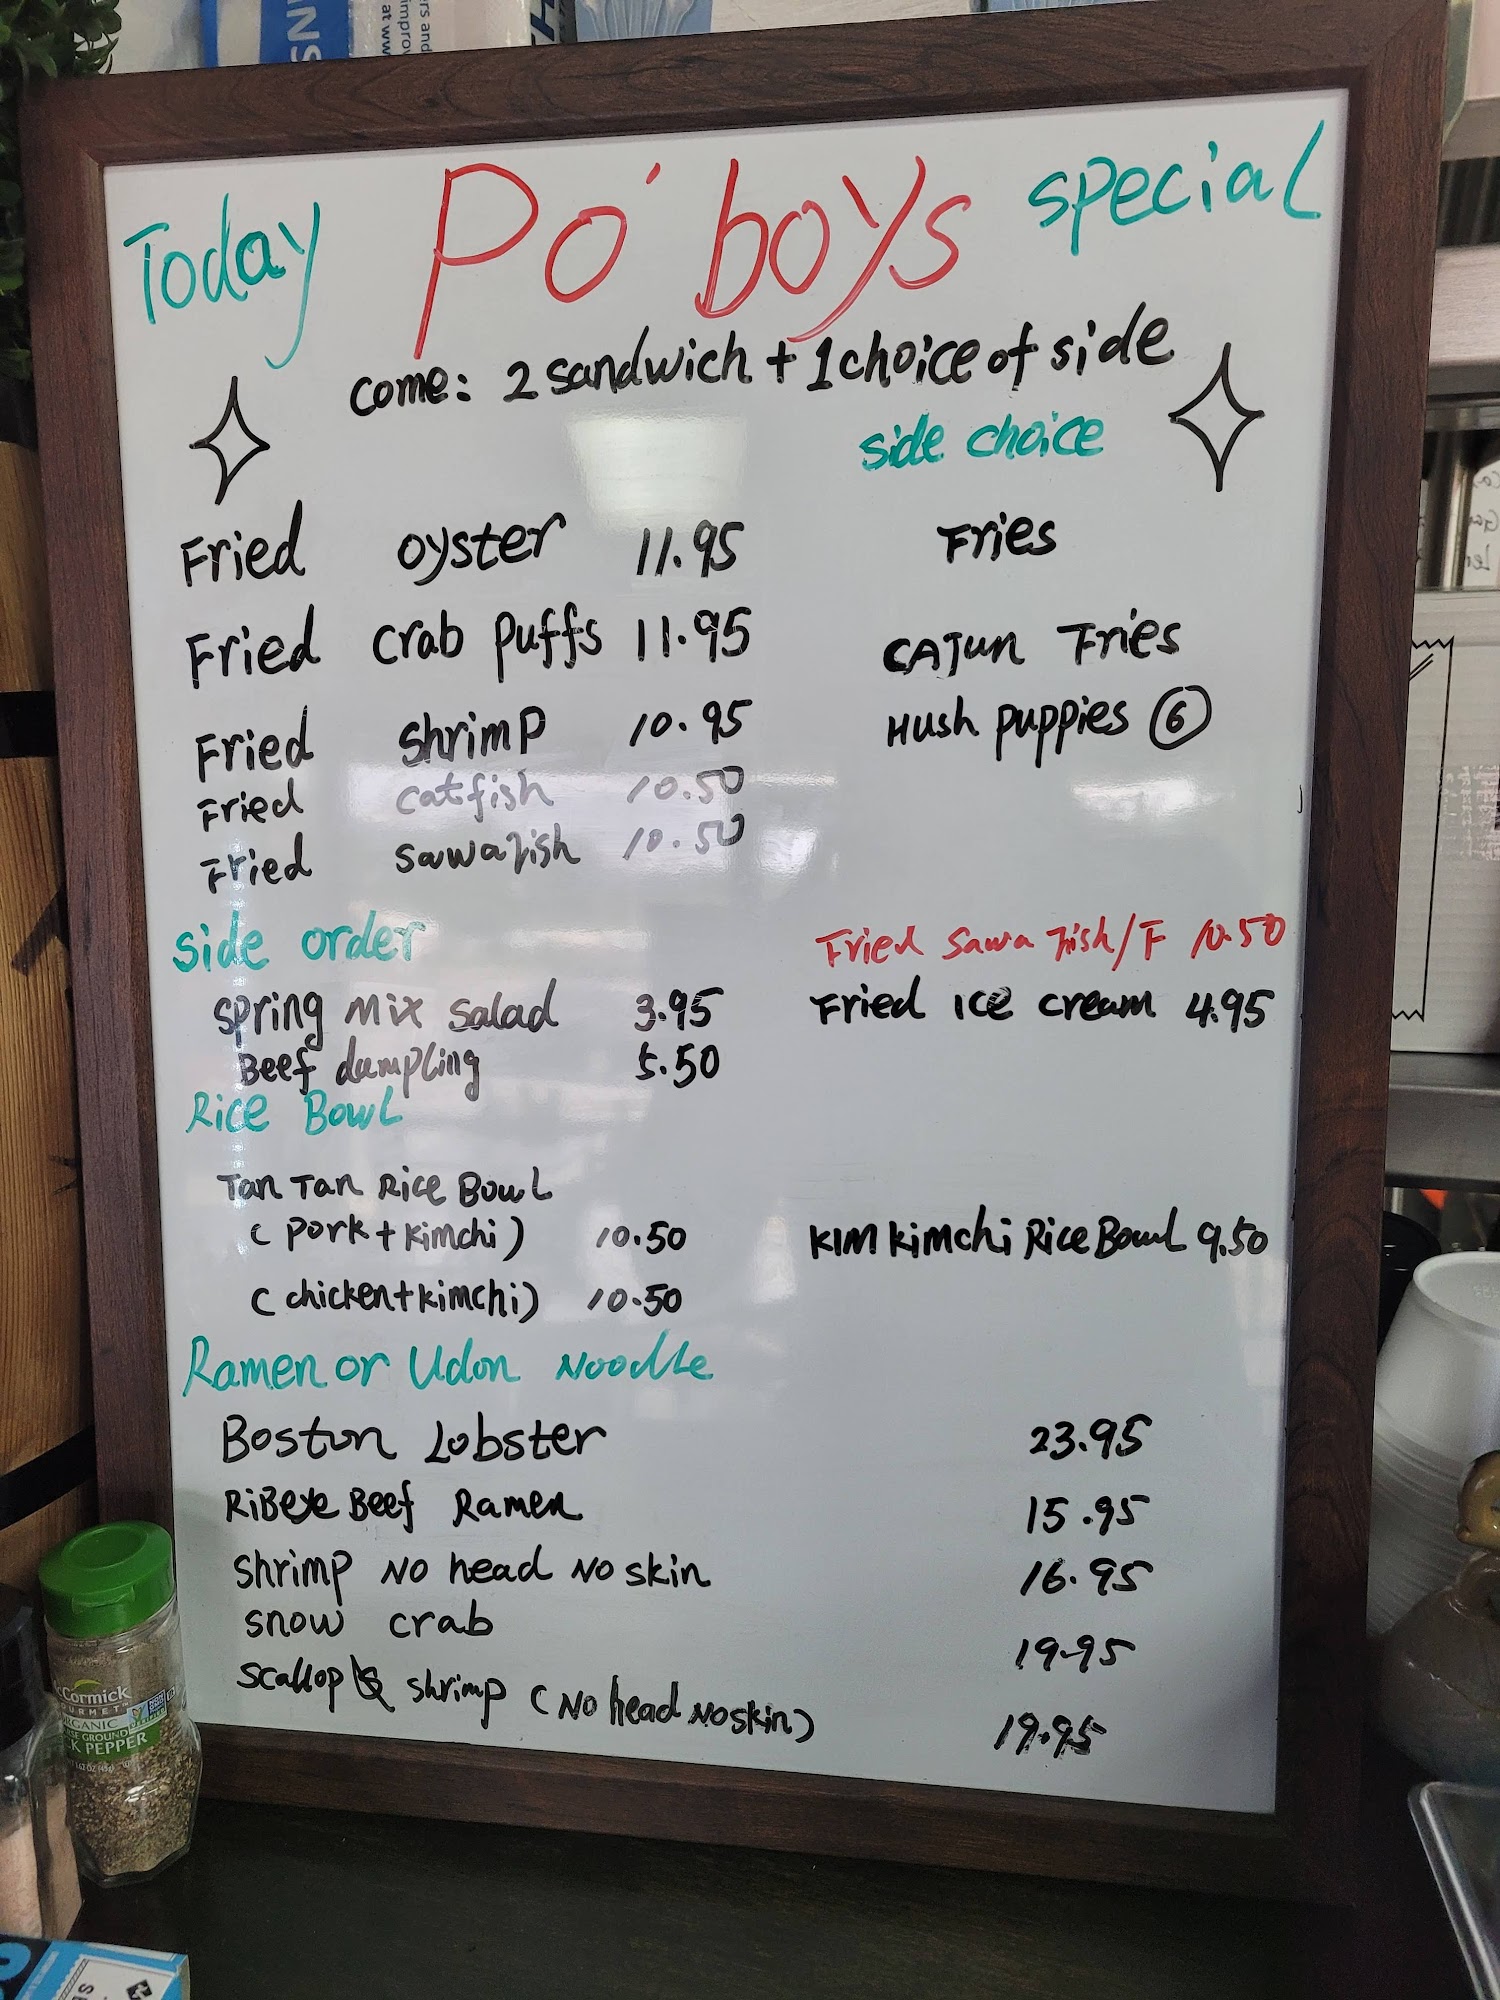 Today Po'boys special
come: 2 sandwich + 1 choice of side
side choice
Fried oyster 11.95 Fries
Fried crab puffs 11.95 CAJun Fries
Fried shrimp 10.95 Hush puppies 6
Fried catfish 10.50
Fried sawafish 10.50
side order
Fried sawa fish/F 10.50
spring mix salad 3.95 Fried ice cream 4.95
Beef dumpling 5.50
Rice Bowl
Tan Tan Rice Bowl
( pork + kimchi ) 10.50 KIM Kimchi Rice Bowl 9.50
( chicken + kimchi ) 10.50
Ramen or Udon Noodle
Boston Lobster 23.95
RiBeye Beef Ramen 15.95
shrimp No head No skin 16.95
snow crab 19.95
scallop & shrimp ( No head No skin ) 19.95
McCormick
GOURMET
ORGANIC
K PEPPER